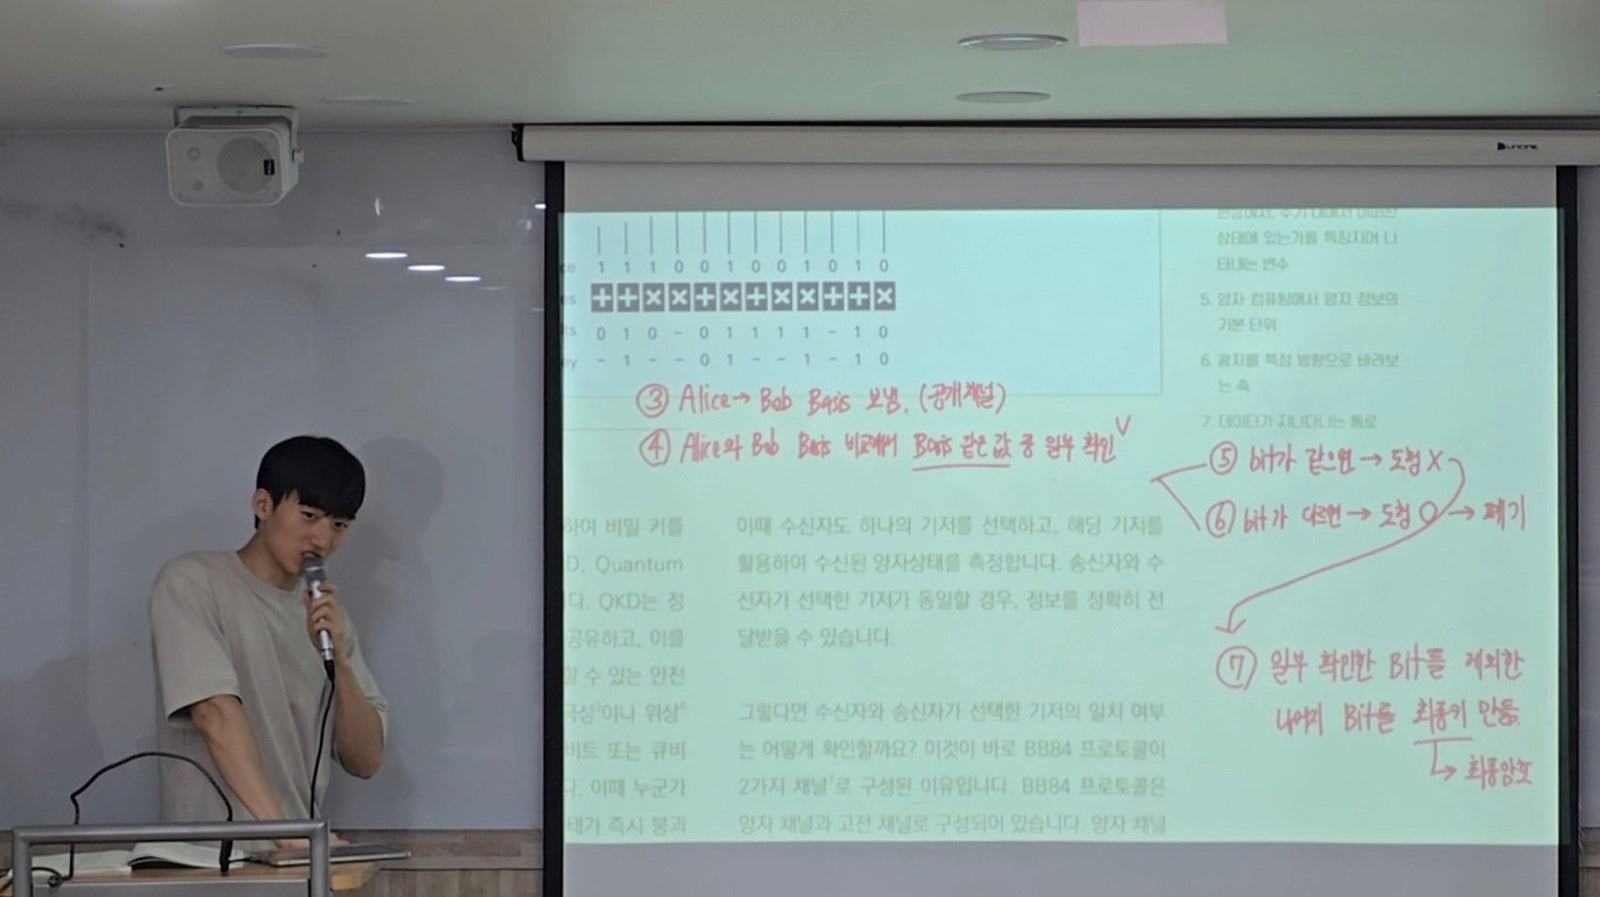 1 1 1 0 0 1 0 0 1 0 1 0
+ + × × + × + × × + + ×
ts 0 1 0 - 0 1 1 1 1 - 1 0
ey - 1 - - 0 1 - - 1 - 1 0
③ Alice → Bob Basis 보냄. (공개채널)
④ Alice와 Bob Basis 비교해서 Basis 같은 값 중 일부 확인
⑤ bit가 같으면 → 도청 X
⑥ bit가 다르면 → 도청 O → 폐기
⑦ 일부 확인한 Bit들 제외한
나머지 Bit를 최종키 만듦.
→ 최종암호
하여 비밀 키를
D, Quantum
다. QKD는 정
공유하고, 이를
할 수 있는 안전
극성⁵이나 위상⁶
비트 또는 큐비
다. 이때 누군가
태가 즉시 붕괴
이때 수신자도 하나의 기저를 선택하고, 해당 기저를
활용하여 수신된 양자상태를 측정합니다. 송신자와 수
신자가 선택한 기저가 동일할 경우, 정보를 정확히 전
달받을 수 있습니다.
그렇다면 수신자와 송신자가 선택한 기저의 일치 여부
는 어떻게 확인할까요? 이것이 바로 BB84 프로토콜이
2가지 채널⁷로 구성된 이유입니다. BB84 프로토콜은
양자 채널과 고전 채널로 구성되어 있습니다. 양자 채널
상태에 있는가를 특징지어 나
타내는 변수
5. 양자 컴퓨팅에서 양자 정보의
기본 단위
6. 광자를 특정 방향으로 바라보
는 축
7. 데이터가 지나다니는 통로